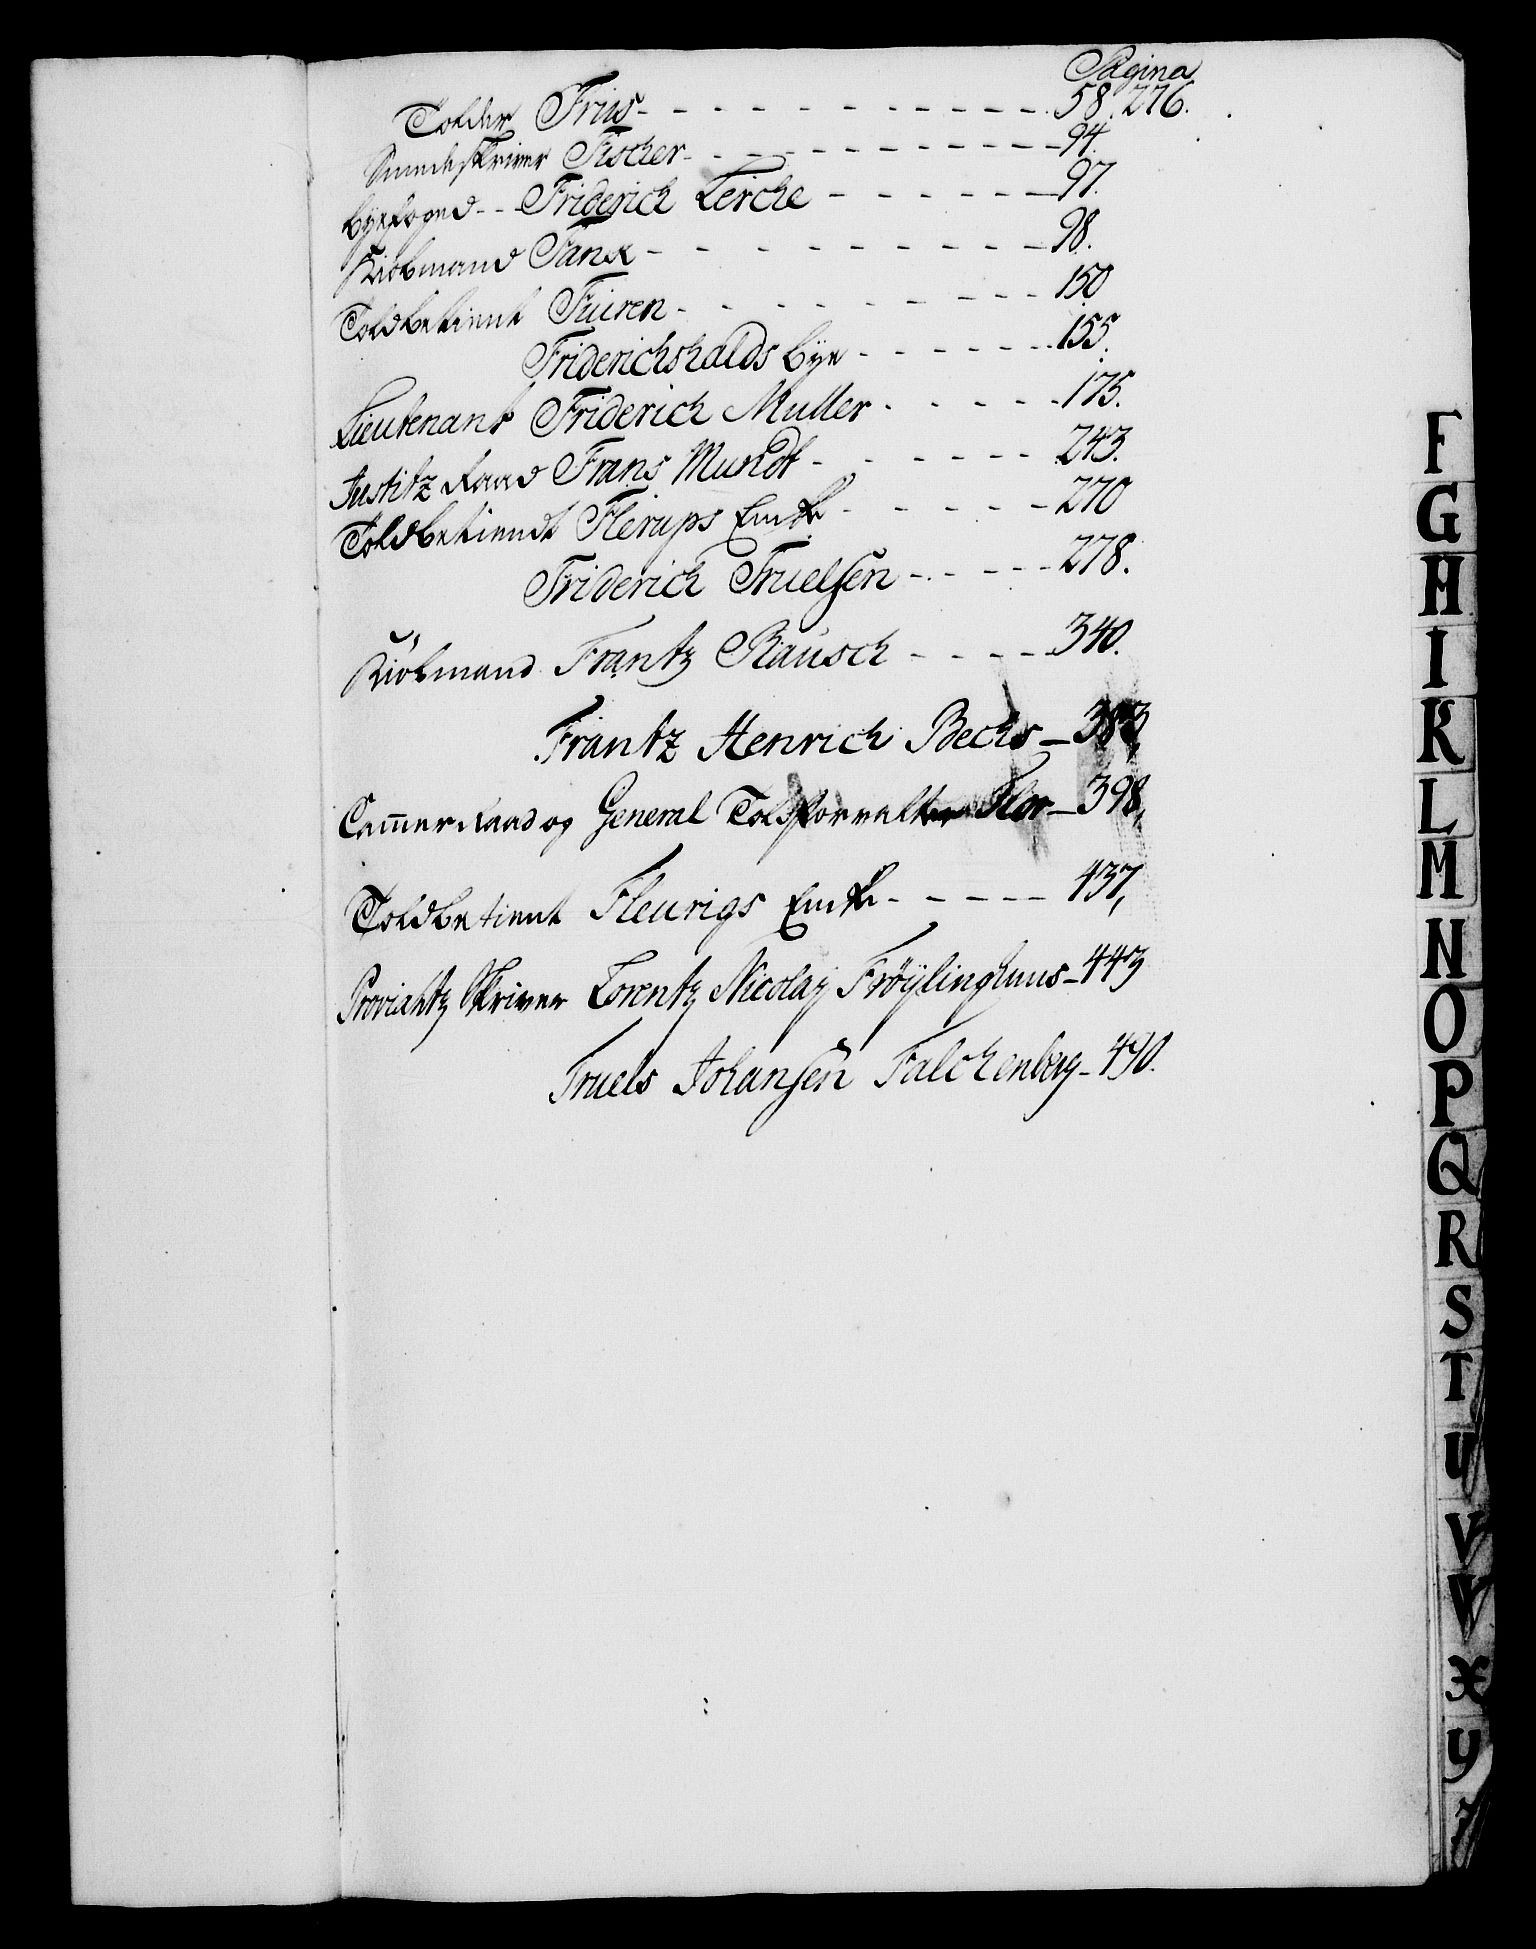 Pagina
Tolder Friis - - - - - - - - - - - - 58. 276.
Fischer - - - - - - - - - - - 94.
Byefoged - - Friderich Lerche - - - - - - - 97.
Kiöbmand Fanck - - - - - - - - - - 98.
Toldbetient Fuiren - - - - - - - - - 150
Friderichshalds bÿe - - - - - - 155.
Lieutenant Friderich Muller - - - - - 175.
Justitz Raad Frans Mundt - - - - - - - 243.
Toldbetiendt Flerups Encke - - - - - - 270
Friderich Truelsen - - - - - 278.
Kiöbmand Frantz Rausch - - - - 340.
Frantz Henrich Bechs - 383,
Cam̅erRaad og General Toldforvalter Flor - 398,
Toldbetient Fleurigs Encke - - - - - 437,
Proviantz Skriver Lorentz Nicolaÿ Fröÿlinghuus - 443
Truels Johansen Falchenberg - 490.
F
G
H
I
K
L
M
N
O
P
Q
R
S
T
U
V
W
X
Y